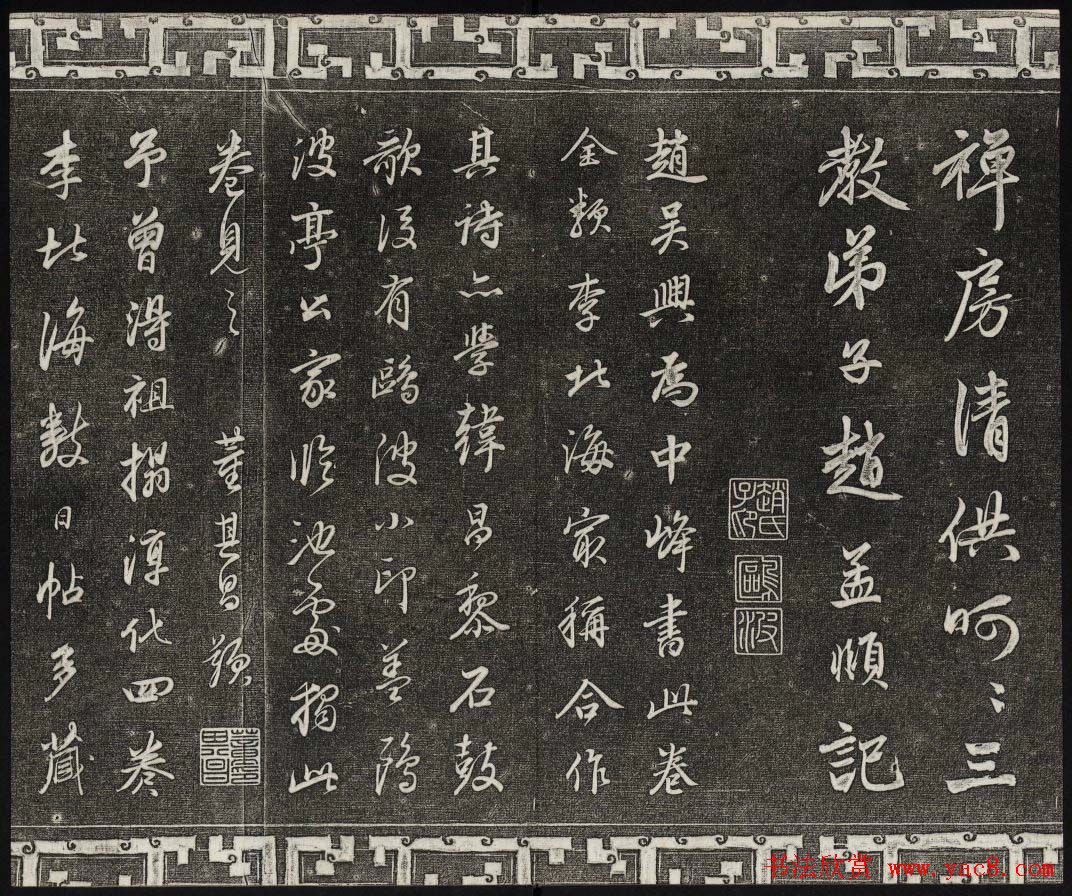 禅房清供呵〻三
教弟子趙孟頫記
趙氏子印
鷗波
趙吳興爲中峰書此卷
全類李北海最稱合作
其詩亦學韓昌黎石鼓
歌後有鷗波小印葢鷗
波亭公家臨池處獨此
卷見之 董其昌題
予曾得祖搨淳化四卷
李北海數日帖多藏
书法欣赏 www.yac8.com